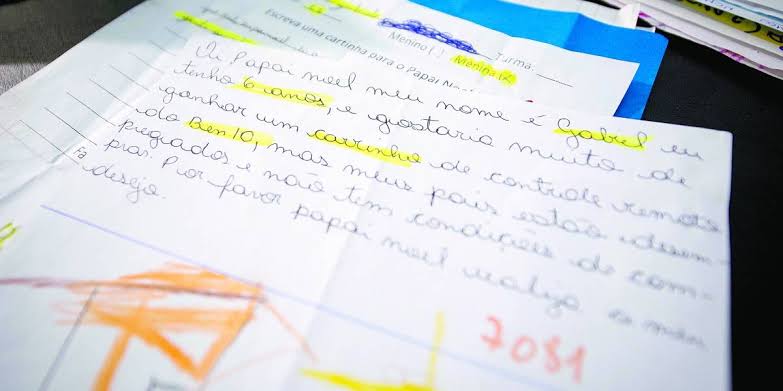 Escreva uma cartinha para o Papai No
Menino ( ) Menina ( Turma:
Oi Papai noel meu nome é Gabriel eu
tenho 6 anos, e gostaria muito de
ganhar um carrinho de controle remoto
do Ben 10, mas meus pais estão desem-
pregados e não tem condições de com-
prar. Por favor papai noel realize
desejo.
Fa
7081